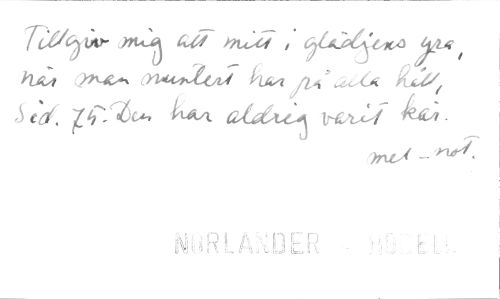 Tillgiv mig att mitt i glädjens yra,
när man muntert har på alla håll,
Sid. 75. Den har aldrig varit kär.
mel-not.
NORLANDER - RODELL